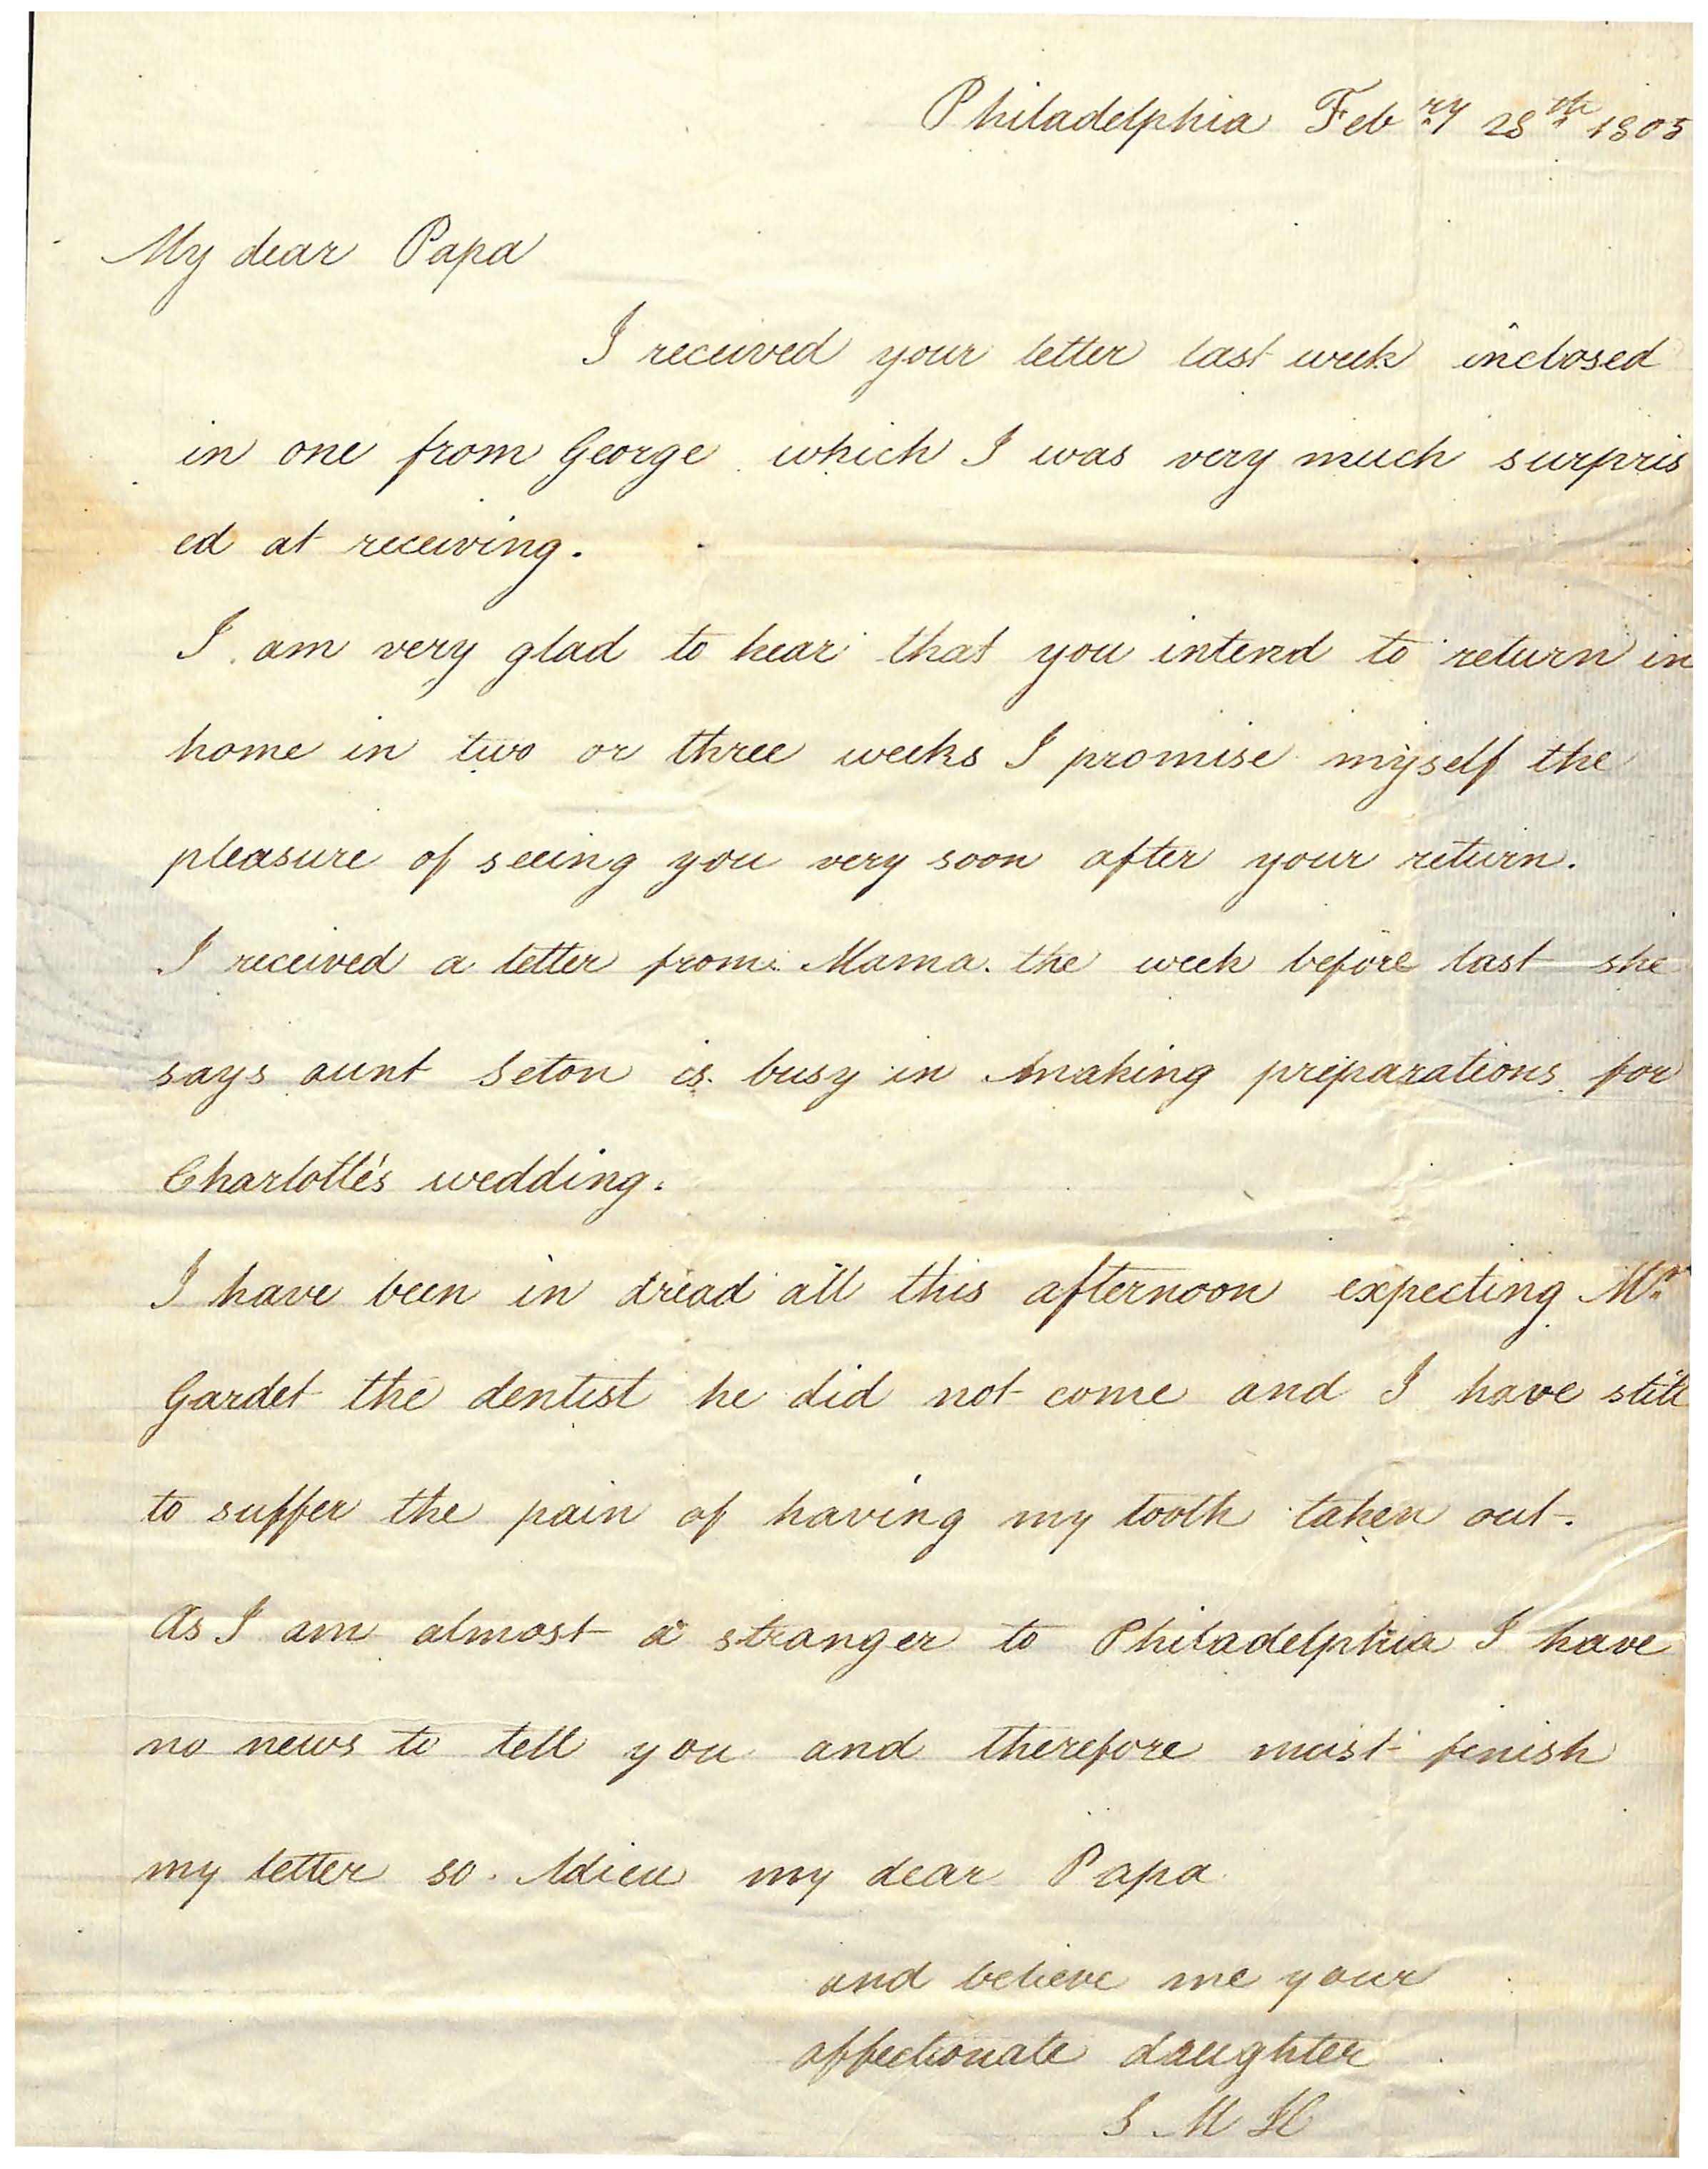 Philadelphia Feb ry 28th 1805
My dear Papa
I received your letter last week inclosed
in one from George which I was very much surpris
ed at receiving.
I am very glad to hear that you intend to return in
home in two or three weeks I promise myself the
pleasure of seeing you very soon after your return.
I received a letter from Mama. the week before last she
says aunt Seton is busy in making preparations for
Charlotte's wedding.
I have been in dread all this afternoon expecting Mr
Gardet the dentist he did not come and I have still
to suffer the pain of having my tooth taken out.
As I am almost a stranger to Philadelphia I have
no news to tell you and therefore must finish
my letter so. Adieu my dear Papa
and believe me your
affectionate daughter
S M H